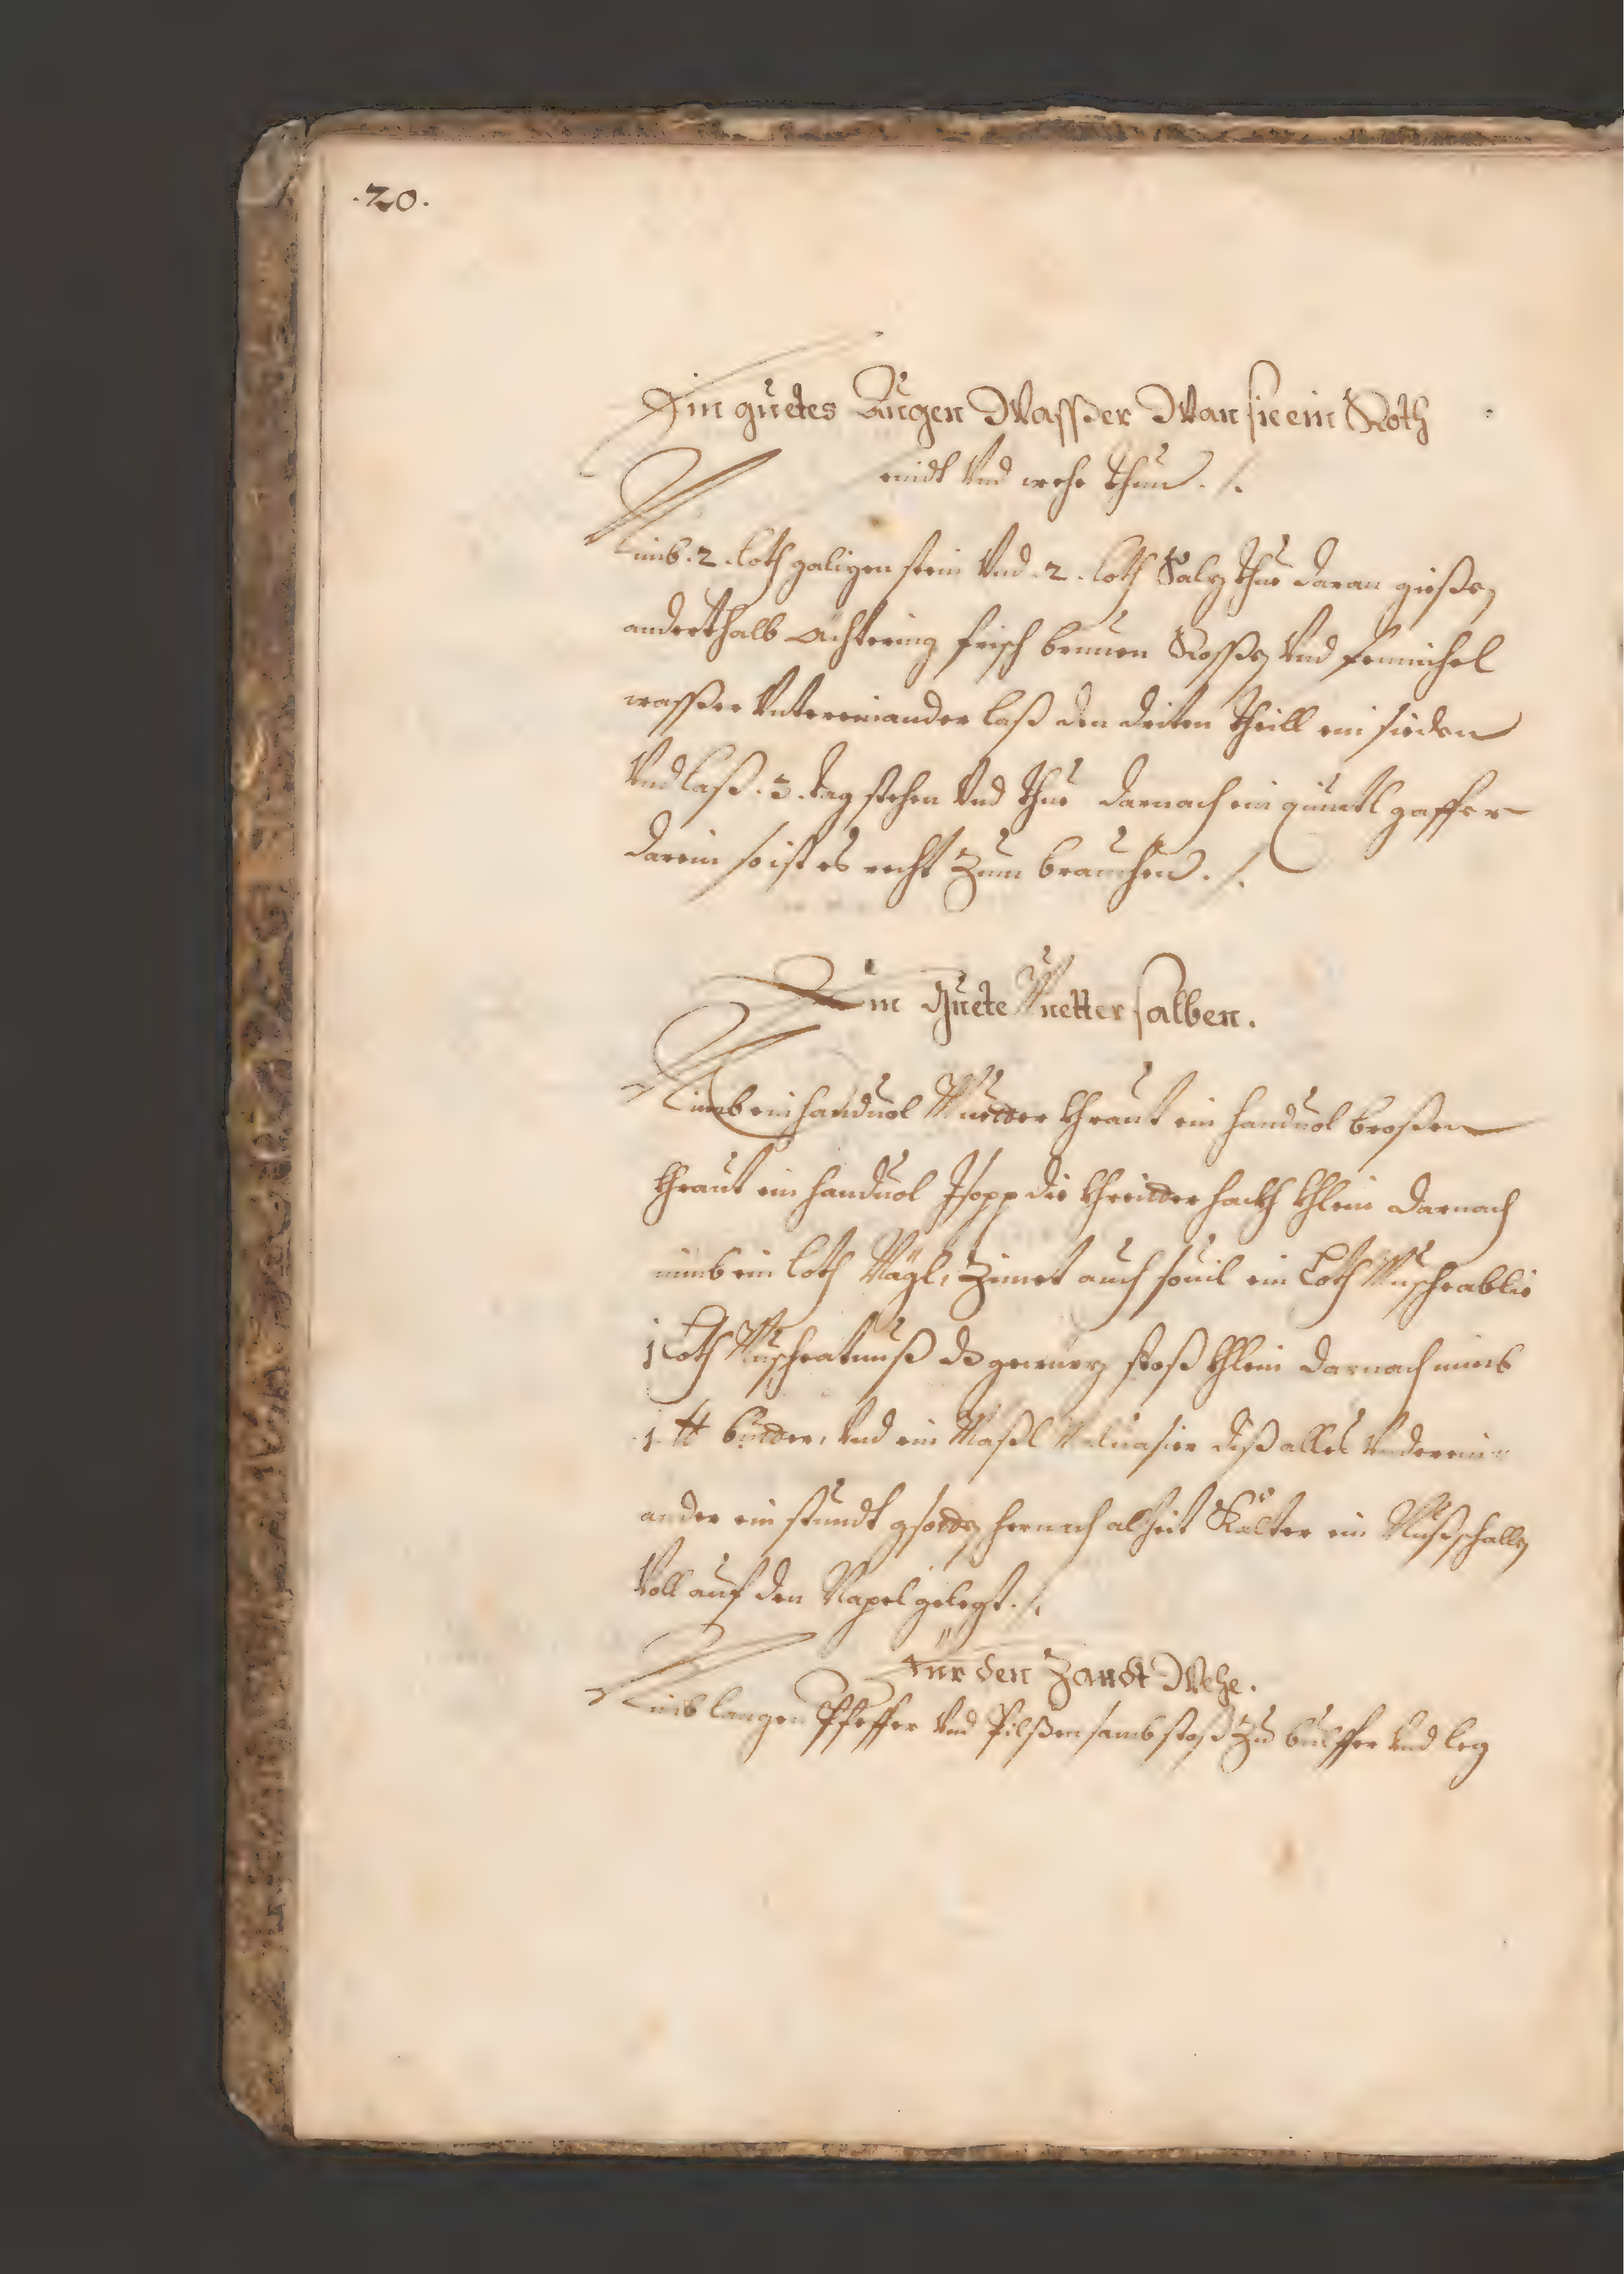 .20.
Ein guetes Augen Wasser Wan sie ein Roth
seindt Und wehe thuen ./.
Nimb .2. loth galizen stein Und .2. loth Salz thue daran giessen
anderthalb Achtering frisch brunen Rossen Und fennichel
wasser Untereinander laß den driten theill ein sieden
Und laß .3. tag stehen Und thue darnach ein quintl gaffer
darein so ist es recht Zum brauchen ./.
Ein Guete Muetter salben.
Nimb ein handuol Muetter khraut ein handuol brossen
khraut ein handuol Isopp die khreitter hackh khlein darnach
nimb ein loth Nägl, Zimet auch souil ein Loth Muschcablie
1 Loth Muschcatnuß dz gewürz stoß khlein darnach nimb
1 ℔ butter, Und ein Maßl Maluasier diß alles Underein
ander ein stundt gsotten hernach alzeit Kalter ein Nußschallen
Voll auf den Napel gelegt ./.
Für den Zandt Wehe.
Nimb langen Pfeffer Und Pilssen samb stoß Zu bulffer Und leg